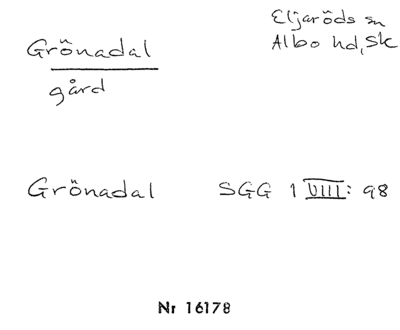 Grönadal
gård
Eljaröds sn
Albo hd, Sk
Grönadal SGG 1 VIII: 98
Nr 16178